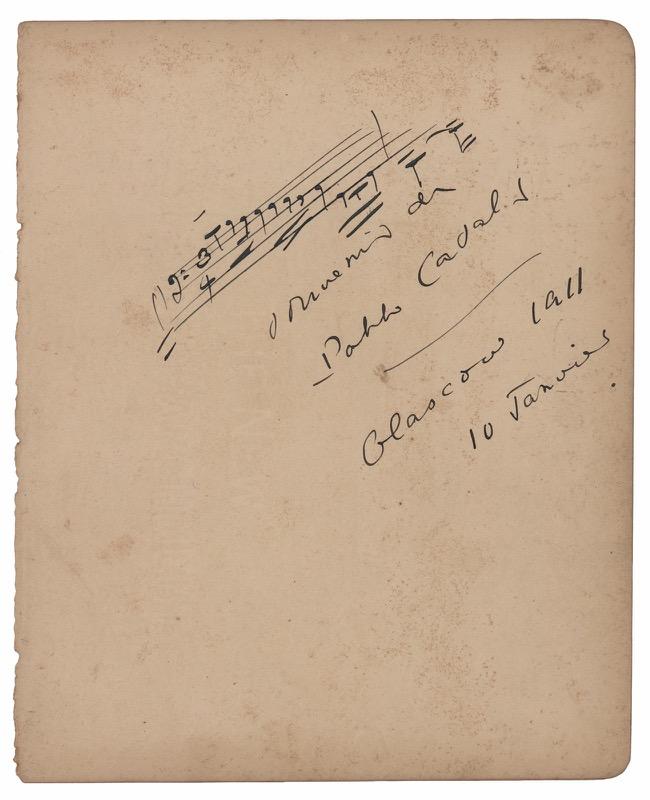 3
4
souvenir de
Pablo Casals
Glascow 1911
10 Janvier.